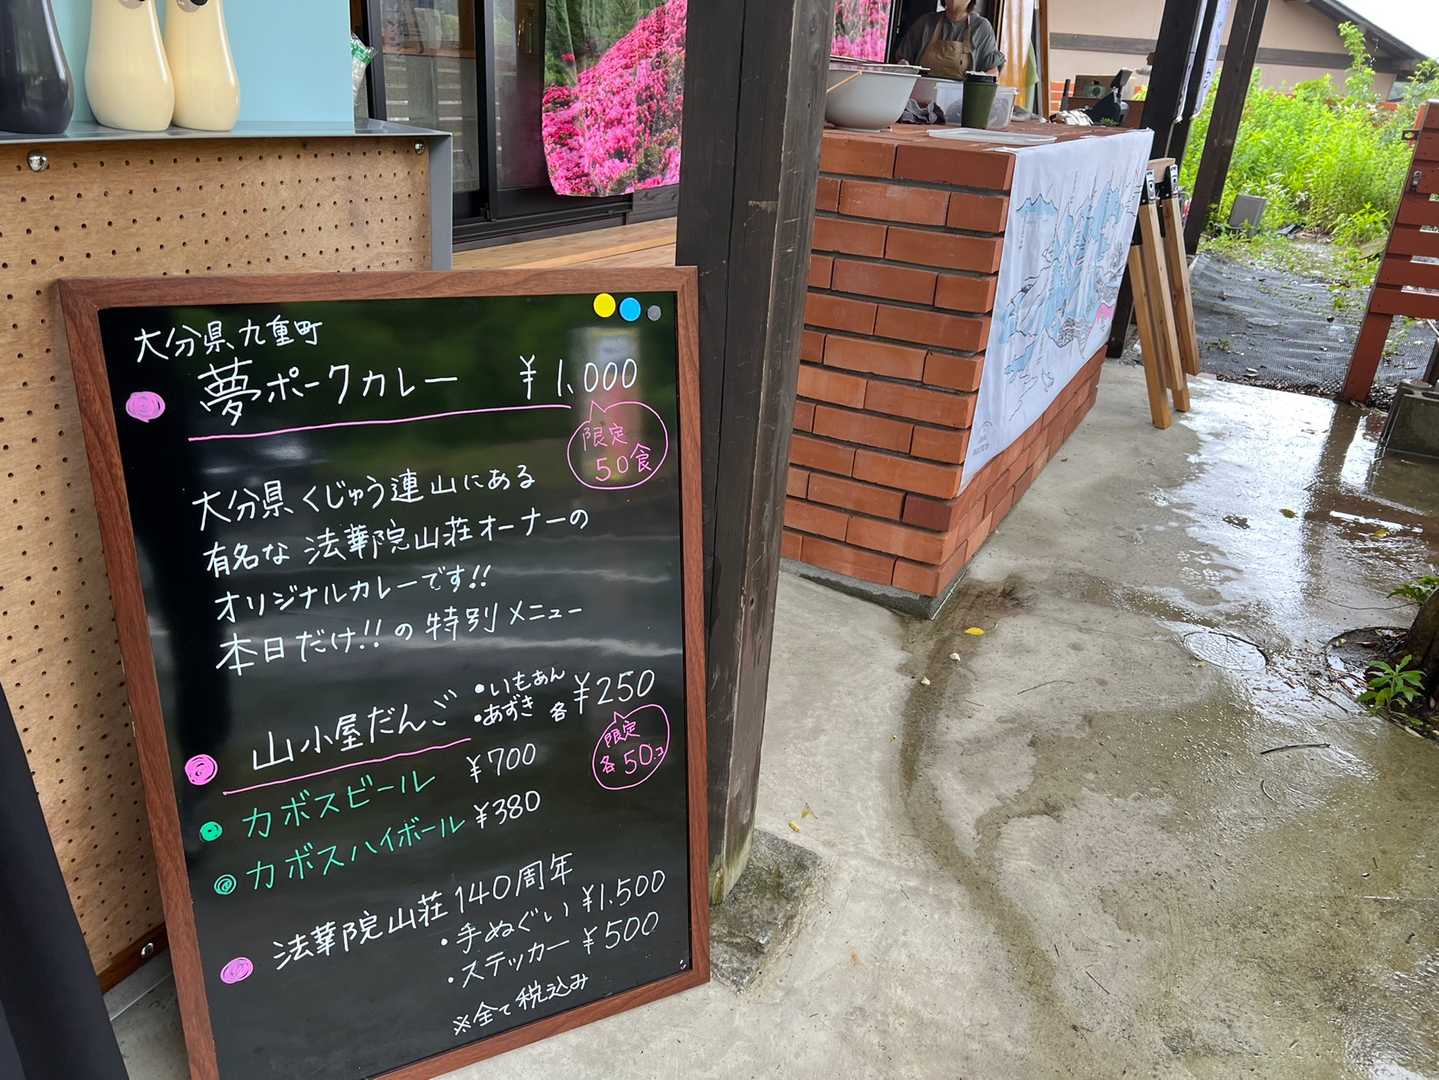 大分県九重町
夢ポークカレー ¥1,000
限定
50食
大分県くじゅう連山にある
有名な 法華院山荘オーナーの
オリジナルカレーです!!
本日だけ!!の特別メニュー
山小屋だんご ・いもあん ・あずき 各 ¥250
限定
各50コ
カボスビール ¥700
カボスハイボール ¥380
法華院山荘140周年
・手ぬぐい ¥1,500
・ステッカー ¥500
※全て税込み